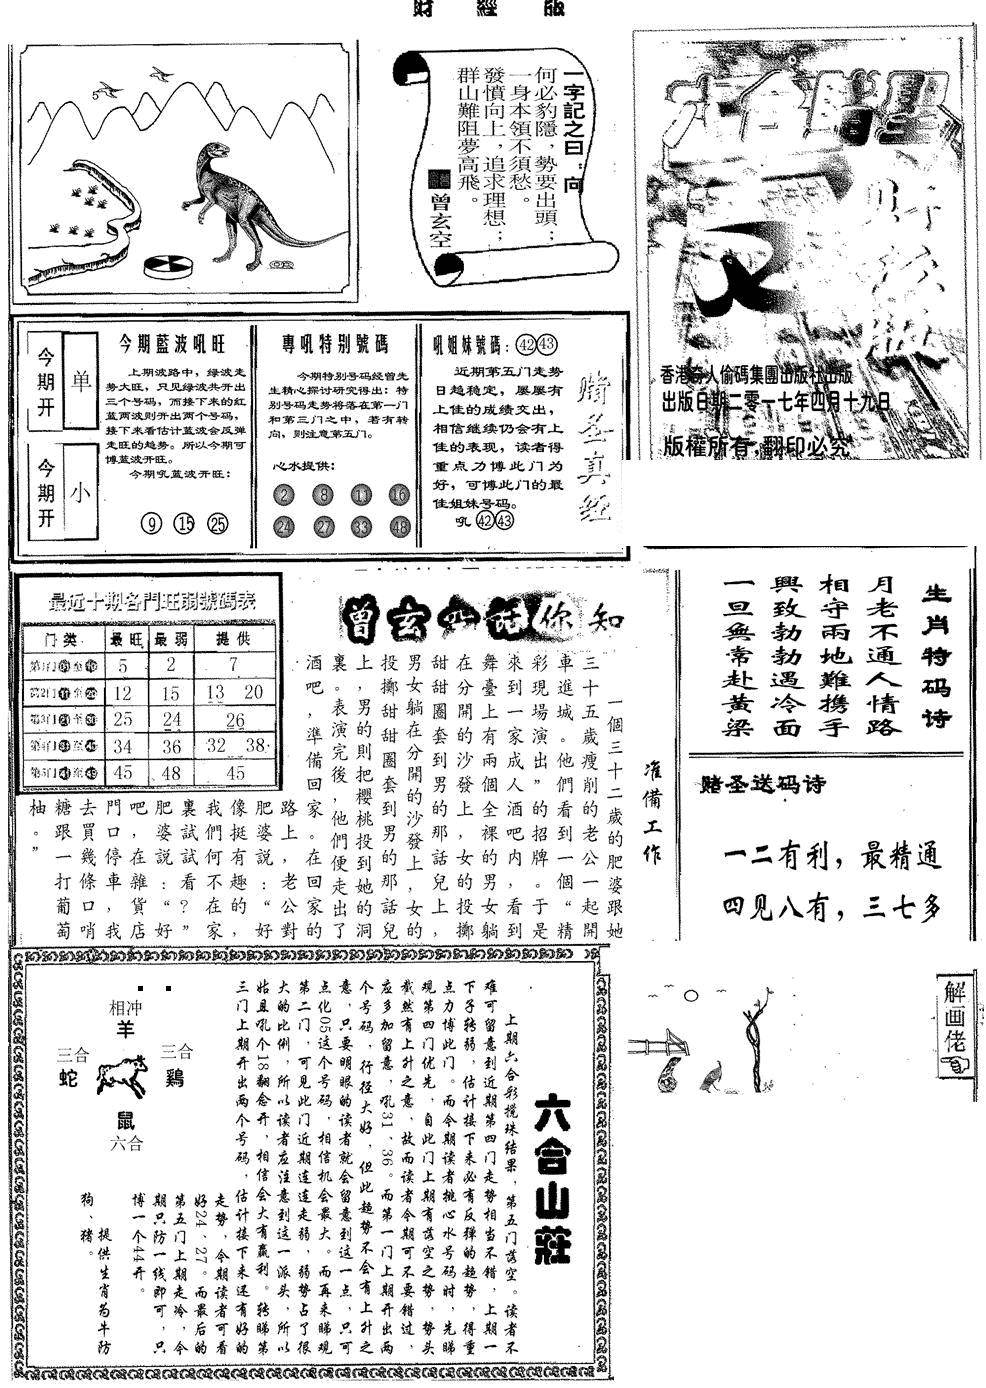 財經版
一字記之曰：向
何必豹隱，勢要出頭；
一身本領不須愁。
發憤向上，追求理想；
群山難阻夢高飛。
曾玄空
香港奇人偷碼集團出版社出版
出版日期二零一七年四月十九日
版權所有，翻印必究
今期开
单
今期开
小
今期藍波吼旺
上期波路中，绿波走
势大旺，只见绿波共开出
三个号码，而接下来的红
蓝两波则开出两个号码，
接下来看估计蓝波会反弹
走旺的趋势。所以今期可
博蓝波开旺。
今期吼蓝波开旺：
9 15 25
專吼特别號碼
今期特别号码经曾先
生精心探讨研究得出：特
别号码走势将落在第一门
和第三门之中，若有转
向，则注意第五门。
心水提供：
2 8 11 16
24 27 33 48
吼姐妹號碼：42 43
近期第五门走势
日趋稳定，屡屡有
上佳的成绩交出，
相信继续仍会有上
佳的表现，读者得
重点力博此门为
好，可博此门的最
佳姐妹号码。
吼 42 43
赌圣真经
最近十期各門旺弱號碼表
门类 最旺 最弱 提供
5 2 7
12 15 13 20
25 24 26
34 36 32 38
45 48 45
曾玄空話你知
准備工作
一個三十二歲的肥婆跟她
三十五歲瘦削的老公一起開
車進城。他們看到一個“精
彩現場演出”的招牌。于是
來到一家成人酒吧内，看到
舞臺上有兩個全裸的男女躺
在分開的沙發上，女的投擲
甜甜圈套到男的那話兒上，
男女躺在分開的沙發上，女的
投擲甜甜圈套到男的那話兒
上，男的則把櫻桃投到她的洞
裏。表演完後，他們便走出了
酒吧，準備回家。在回家的
路上，老公對
肥婆説：“好
像挺有趣的，
我們何不在家
裏試試看？”
肥婆説：“好
吧，在雜貨店
門口停車，我
去買幾條口哨
糖跟一打葡萄
柚。”
生肖特码诗
月老不通人情路
相守兩地難携手
興致勃勃遇冷面
一旦無常赴黃梁
赌圣送码诗
一二有利，最精通
四见八有，三七多
解画佬
六合山莊
上期六合彩搅珠结果，第五门落空。读者不
难可留意到近期第四门走势相当不错，上期一
下子转弱，估计接下来必有反弹的趋势，得重
点力博此门。而今期读者挑心水号码时，先睇
观第四门优先，自此门上期有落空之势，势头
截然有上升之意，故而读者今期可不要错过，
应多加留意，吼31、36。而第一门上期开出两
个号码，行径大好，但此趋势不会有上升之
意，只要明眼的读者就会留意到这一点，只可
点化05这个号码，相信机会最大。而再来睇观
第二门，可见此门近期连连走弱，弱势占了很
大的比例，所以读者应注意到这一派头，所以
姑且吼个18翻念开，相信会大有赢利。转睇第
三门上期开出两个号码，估计接下来还有好的
走势，今期读者可看
好24、27。而最后的
第五门上期走冷，今
期只防一线即可，只
博一个44开。
提供生肖为牛防
狗、猪。
相冲
羊
三合
蛇
三合
鷄
鼠
六合